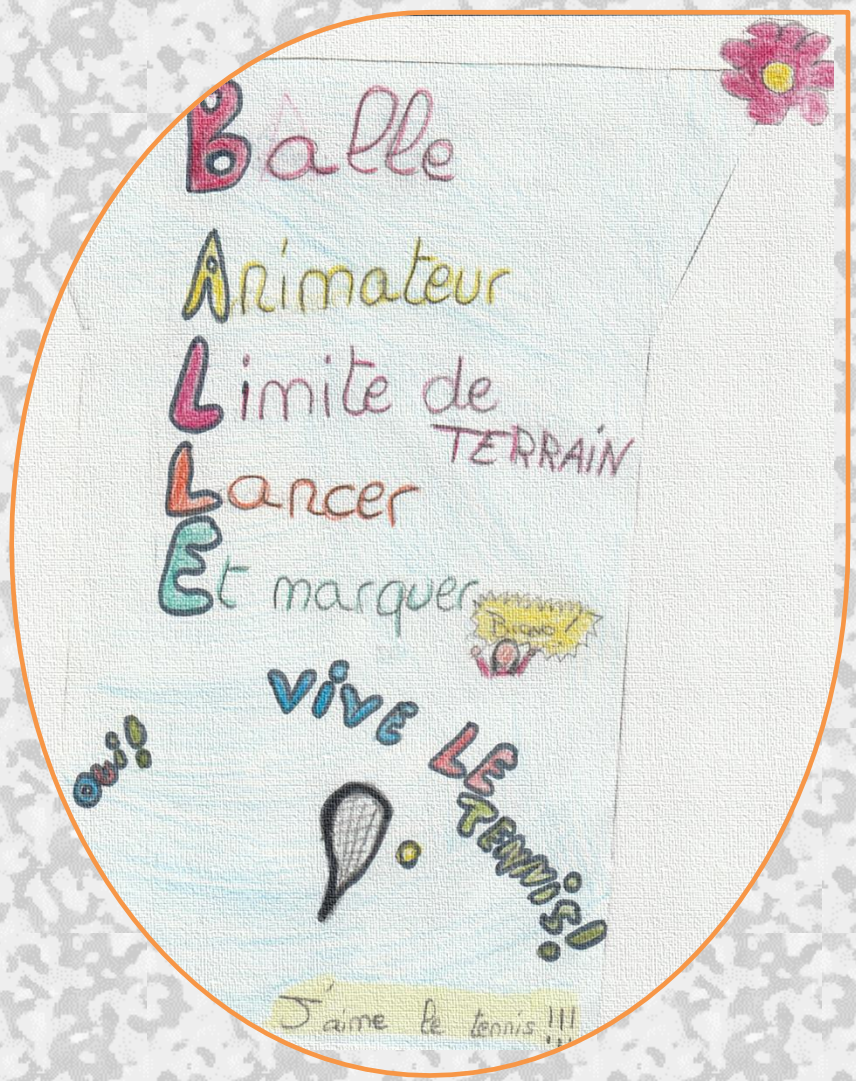 Balle
Animateur
Limite de
TERRAIN
Lancer
Et marquer
VIVE LE
TENNIS!
OUi!
J'aime le tennis !!!